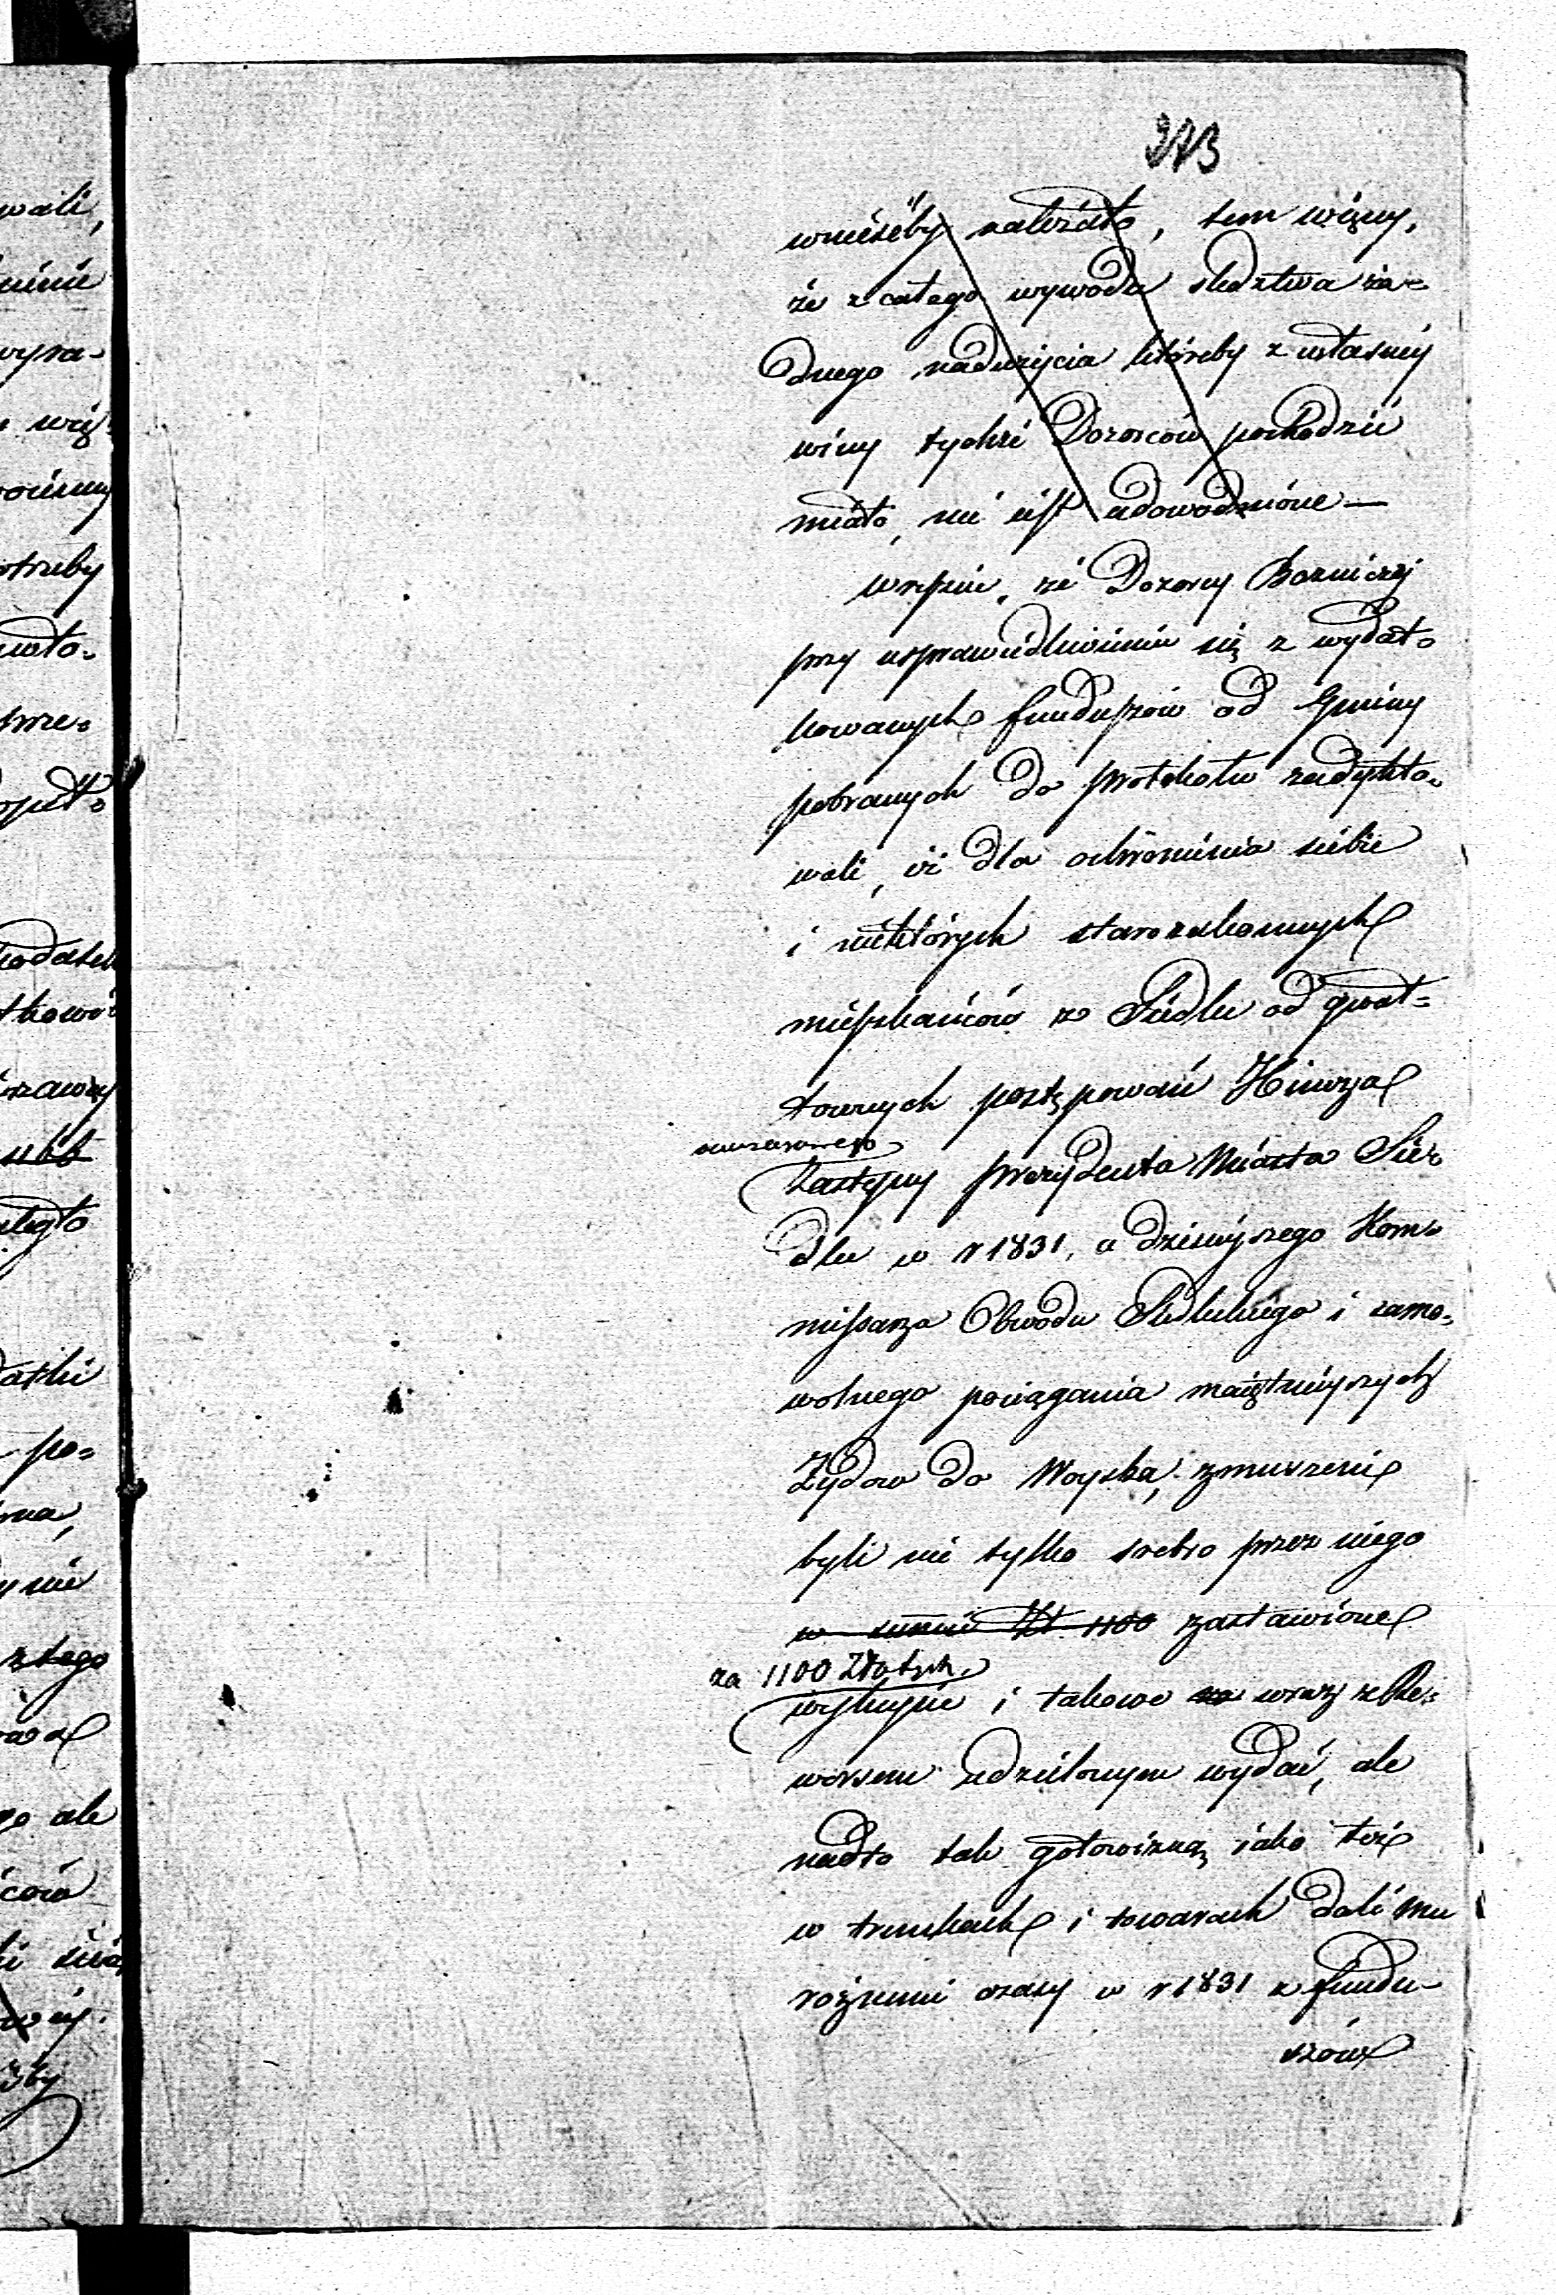 wali,
wyra-
trzeby
273
wnieśćby należało, tem więcey,
że z całego wywodu śledztwa ża-
dnego nadużycia któreby z własney
winy tychże Dozorców pochodzić
miało, nie iest udowodnione —
wreszcie, że Dozorcy Bozniczy
przy usprawiedliwieniu się z wydat-
kowanych funduszów od Gminy
pobranych do protokołu zadykto-
wali, iż dla ochronienia siebie
i niektórych starozakonnych
mieszkańców w Siedlcu od gwał-
townych postępowań Hincza
owczasowego
Zastępcy Prezydenta Miasta Sie-
dlec w r 1831, a dzisieyszego Kom-
missarza Obwodu Siedleckiego i samo-
wolnego pociągania maiętnieyszych
Żydów do Woyska, zmuszeni
byli nie tylko srebro przez niego
w summie Zł. 1100 zastawione
za 1100 Złotych
wykupić i takowe wraz z Re-
wersem udzielonym wydać, ale
nadto tak gotowizną iako też
w trunkach i towarach dali mu
różnemi czasy w r 1831 z fundu-
szów